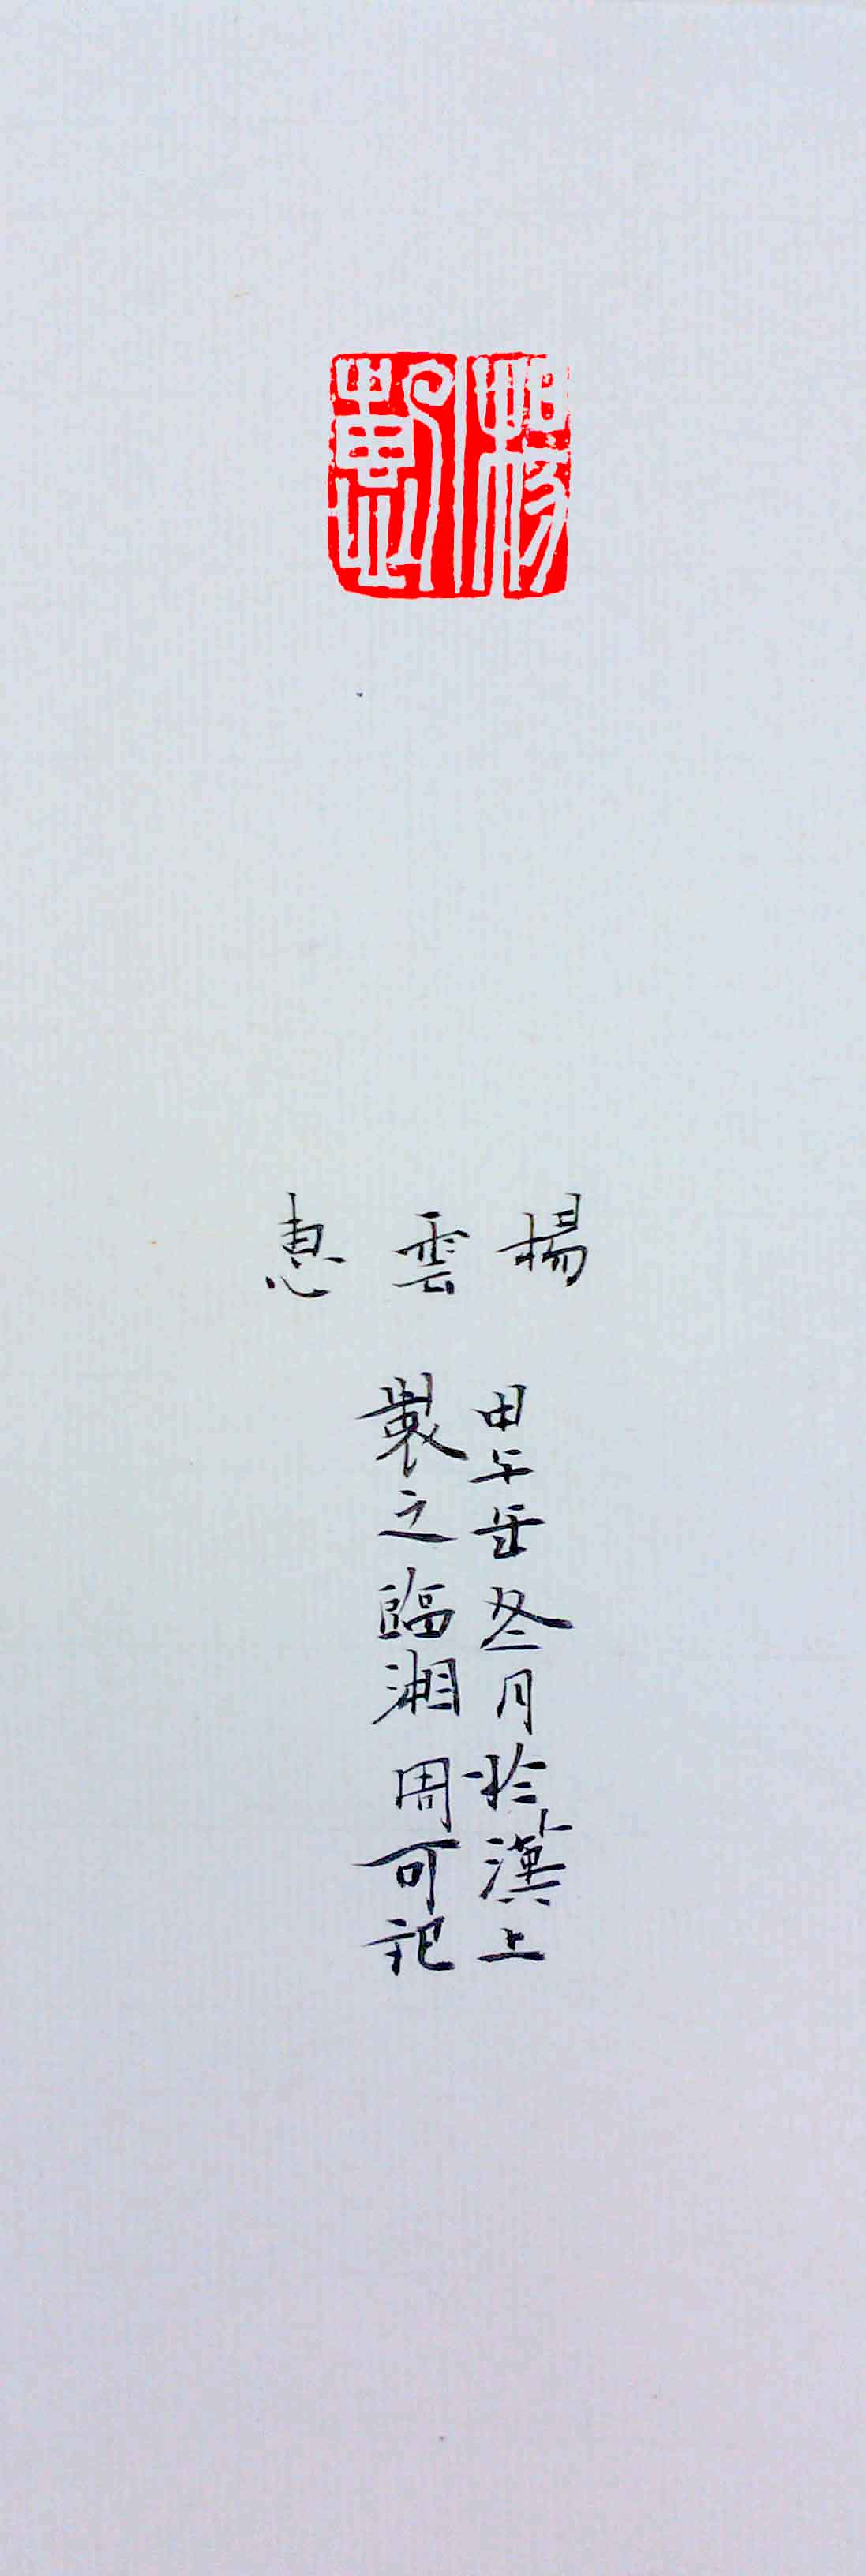 楊雲惠
楊雲惠
甲午年冬月於漢上
製之臨湘周可記